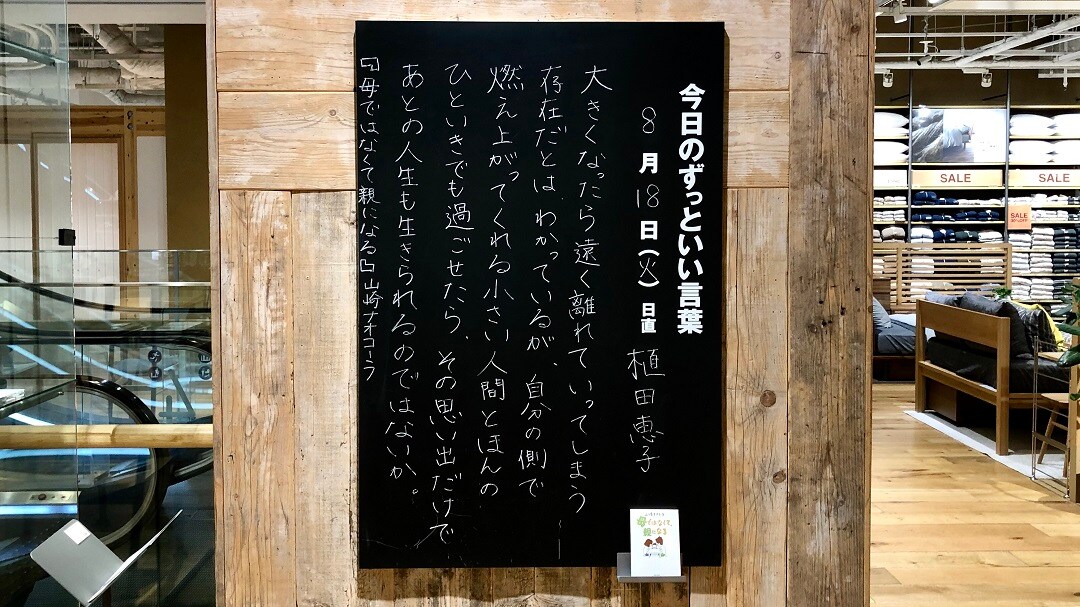 今日のずっといい言葉
8月18日(火) 日直 植田恵子
大きくなったら遠く離れていってしまう
存在だとは、わかっているが、自分の側で
燃え上がってくれる小さい人間とほんの
ひといきでも過ごせたら、その思い出だけで
あとの人生も生きられるのではないか。
『母ではなくて親になる』山崎ナオコーラ
母ではなくて、
親になる
SALE
SALE
SALE